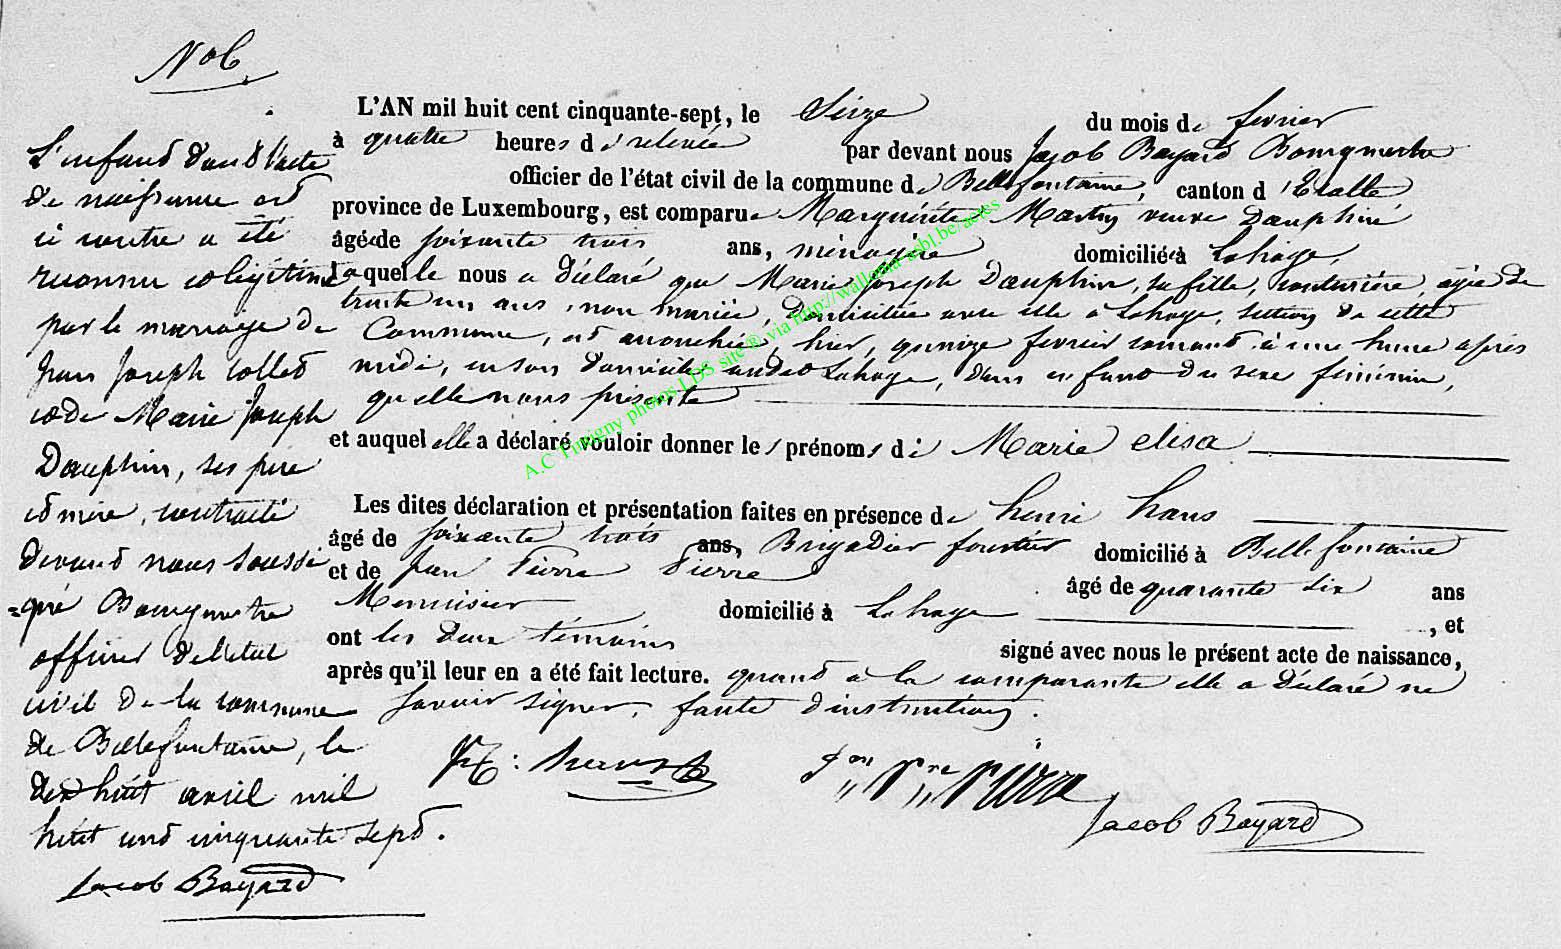 N° 6
L'enfant dont l'acte
de naissance est
ci contre a été
reconnu et légitimé
par le mariage de
Jean Joseph Collet
et de Marie Joseph
Dauphin, ses père
et mère, contracté
devant nous soussi
=gné Bourgmestre
officier de l'état
civil de la commune
de Bellefontaine, le
dix huit avril mil
huit cent cinquante sept.
Jacob Bayard
L'AN mil huit cent cinquante-sept, le seize du mois de fevrier
à quatre heures de relevée par devant nous Jacob Bayard Bourgmestre
officier de l'état civil de la commune de Bellefontaine, canton d'Etalle
province de Luxembourg, est comparue Marguérite Martin veuve Dauphin
âgée de soixante trois ans, ménagère domiciliée à Lahage,
laquelle nous a déclaré que Marie Joseph Dauphin, sa fille, couturière, agée de
trente un ans, non mariée, domiciliée avec elle à Lahage, section de cette
Commune, est accouchée, hier, quinze fevrier courant à une heure après
midi, en son domicile audit Lahage, d'un enfant du sexe féminin,
qu'elle nous présente
et auquel elle a déclaré vouloir donner les prénoms de Marie elisa
Les dites déclaration et présentation faites en présence de henri hans
âgé de soixante trois ans, Brigadier forestier domicilié à Bellefontaine
et de Jean Pierre Pierre âgé de quarante six ans
Menuisier domicilié à Lahage , et
ont les deux témoins signé avec nous le présent acte de naissance,
après qu'il leur en a été fait lecture. quand a la comparante elle a déclaré ne
savoir signer, faute d'instruction.
Jn Pre Pierre
Jacob Bayard
A.C Tintigny photos LDS site ® via http://wallonia-asbl.be/actes